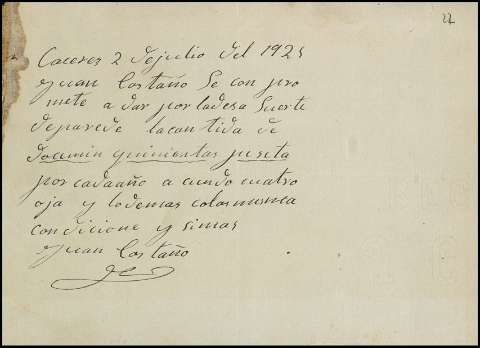 22
Caceres 2 dejulio del 1925
Juan Costaño Se con pro
mete a dar por ladesa Suerte
deparede lacantida de
docemin quinientas peseta
por cadaaño a cuando cuatro
oja y lodemas colasmunca
condicione y simas
Juan Costaño